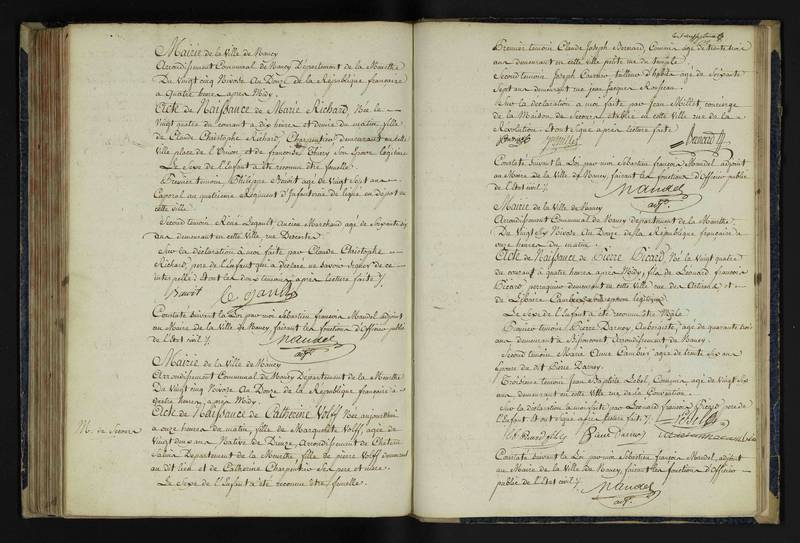 Mairie de la Ville de Nancy
Arrondissement Communal de Nancy Département de la Meurthe
Du Vingt cinq Nivose An Douze de la République française
a Quatre heures après Midy.
Acte de Naissance de Marie Richard, Née le
Vingt quatre du courant a dix heures et demie du matin fille
de Claude Christophe Richard, Charpentier demeurant en cette
Ville place de l'Union et de françoise Thiery son Epouse légitime
Le Sexe de l'Enfant a été reconnu être femelle.
Premier temoin, Philippe Benoit agé de Vingt Sept ans
Caporal au quatrieme Regiment d'Infanterie de ligne en Depot en
cette Ville
Second temoin René Legault ancien Marchand agé de Soixante dix
ans demeurant en cette Ville, rue
Sur la déclaration à moi faite par Claude Christophe
Richard, pere de l'Enfant qui a déclaré ne savoir signer de ce
interpellé; Et ont les dous temoins après lecture faite
Constaté Suivant la Loi par moi Sébastien françois Mandel adjoint
au Maire de la Ville de Nancy, faisant les fonctions d'Officier public
de l'Etat civil
Mandel
adjt.
Mairie de la Ville de Nancy
Arrondissement Communal de Nancy Département de la Meurthe
Du Vingt cinq Nivose An Douze de la République française a
quatre heures après Midy.
Acte de Naissance de Catherine Volff Née aujourd'hui
a onze heures du matin, fille de Marguerite Volff, agée de
Vingt deux ans Native de Dieuze, Arrondissement de Chateau
Salin Departement de la Meurthe, fille de pierre Volff demeurant
au dit lieu et de Catherine Charpentier Ses pere et mere.
Le Sexe de l'Enfant a été reconnu être femelle.
M. de Secours
Premier temoin Claude Joseph Bernard, Commis agé de trente
ans demeurant en cette Ville petite rue du temple
Second temoin Joseph tailleur d'habits agé de Soixante
Sept ans demeurant rue Jean Jacques Rousseau.
Sur la déclaration a moi faite par Jean Millot, concierge
de la Maison de Secours établie en cette Ville rue de la
Révolution. Et ont signé après lecture faite
Bernard
Constaté Suivant la Loi par moi Sébastien françois Mandel, adjoint
au Maire de la Ville de Nancy, faisant les fonctions d'Officier public
de l'Etat civil
Mandel
adjt.
Mairie de la Ville de Nancy
Arrondissement Communal de Nancy departement de la Meurthe.
Du Vingt Six Nivose An Douze de la République française a
onze heures du matin.
Acte de Naissance de Pierre Picard, Né le Vingt quatre
du courant à quatre heures après Midy, fils de Léonard françois
Picard perruquier demeurant en cette Ville rue des Artisans et
de son épouse légitime.
Le Sexe de l'Enfant a été reconnu être Mâle
Premier temoin Pierre Darnoy Aubergiste, agé de quarante trois
ans demeurant à Arrondissement de Nancy.
Second temoin Marie Anne agée de trente six ans
Epouse du dit Pierre Darnoy.
Troisieme temoin Jean Baptiste Lebel, Commis agé de Vingt Six
ans demeurant en cette Ville rue de la Convention.
Sur la déclaration à moi faite par Léonard françois Picard pere de
l'Enfant. Et ont signé après lecture faite
Constaté Suivant la Loi par moi Sébastien françois Mandel, adjoint
au Maire de la Ville de Nancy, faisant les fonctions d'Officier
public de l'Etat civil
Mandel
adjt.